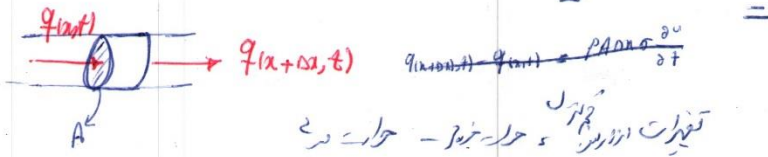 q(x,t)
q(x+Δx,t)
q(x+Δx,t) - q(x,t) = ρAΔxσ ∂u/∂t
A
تغییرات انرژی کنترل = حرارت خروجی - حرارت